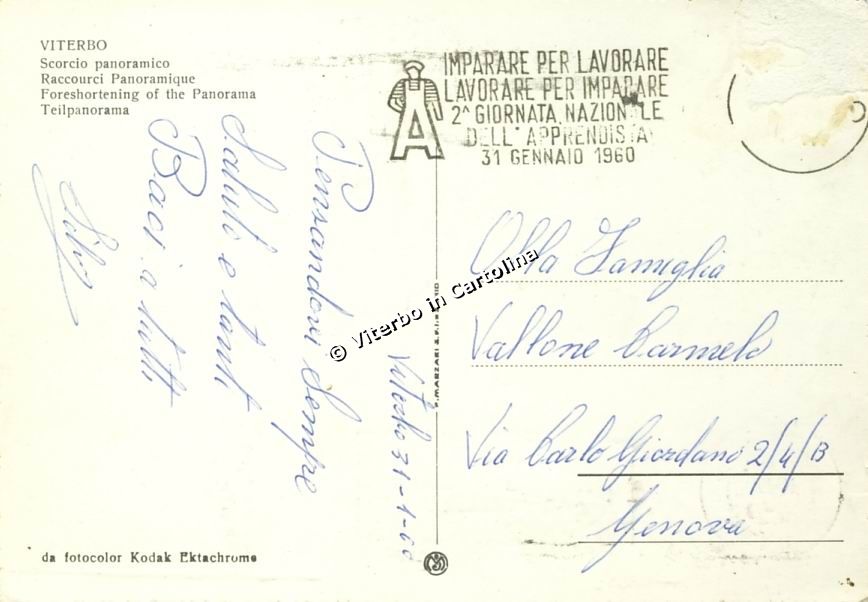 VITERBO
Scorcio panoramico
Raccourci Panoramique
Foreshortening of the Panorama
Teilpanorama
IMPARARE PER LAVORARE
LAVORARE PER IMPARARE
2ª GIORNATA NAZIONALE
DELL'APPRENDISTA
31 GENNAIO 1960
A
Viterbo 31-1-60
Pensandovi Sempre
Saluti e tanti
Baci a tutti
Alla Famiglia
Vallone Carmelo
Via Carlo Giordano 2/4/B
Genova
© Viterbo in Cartolina
da fotocolor Kodak Ektachrome